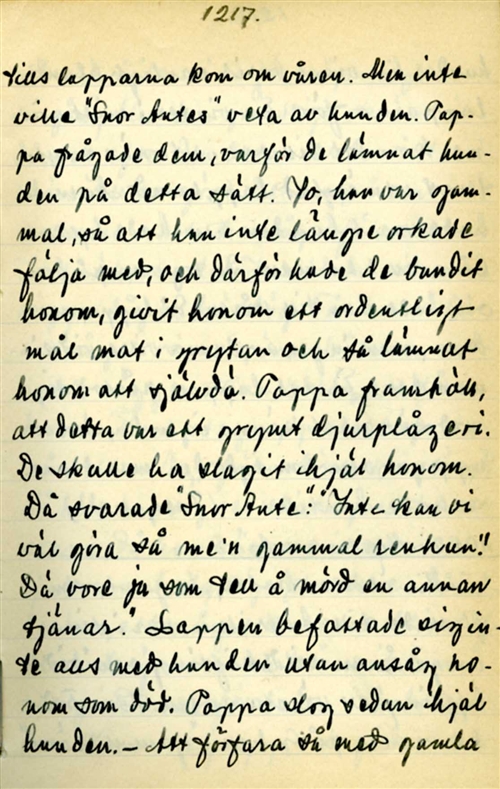 1217.
tills lapparna kom om våren. Men inte
ville "Snor Antes" veta av hunden. Pap-
pa frågade dem, varför de lämnat hun-
den på detta sätt. Jo, han var gam-
mal, så att han inte längre orkade
följa med, och därför hade de bundit
honom, givit honom ett ordentligt
mål mat i grytan och så lämnat
honom att självdö. Pappa framhöll,
att detta var ett grymt djurplågeri.
De skulle ha slagit ihjäl honom.
Då svarade "Snor Ante": "Inte kan vi
väl göra så me'n gammal renhun."
Dä vore ju som tell å mörd en annan
tjänar." Lappen befattade sig in-
te alls med hunden utan ansåg ho-
nom som död. Pappa slog sedan ihjäl
hunden. – Att förfara så med gamla